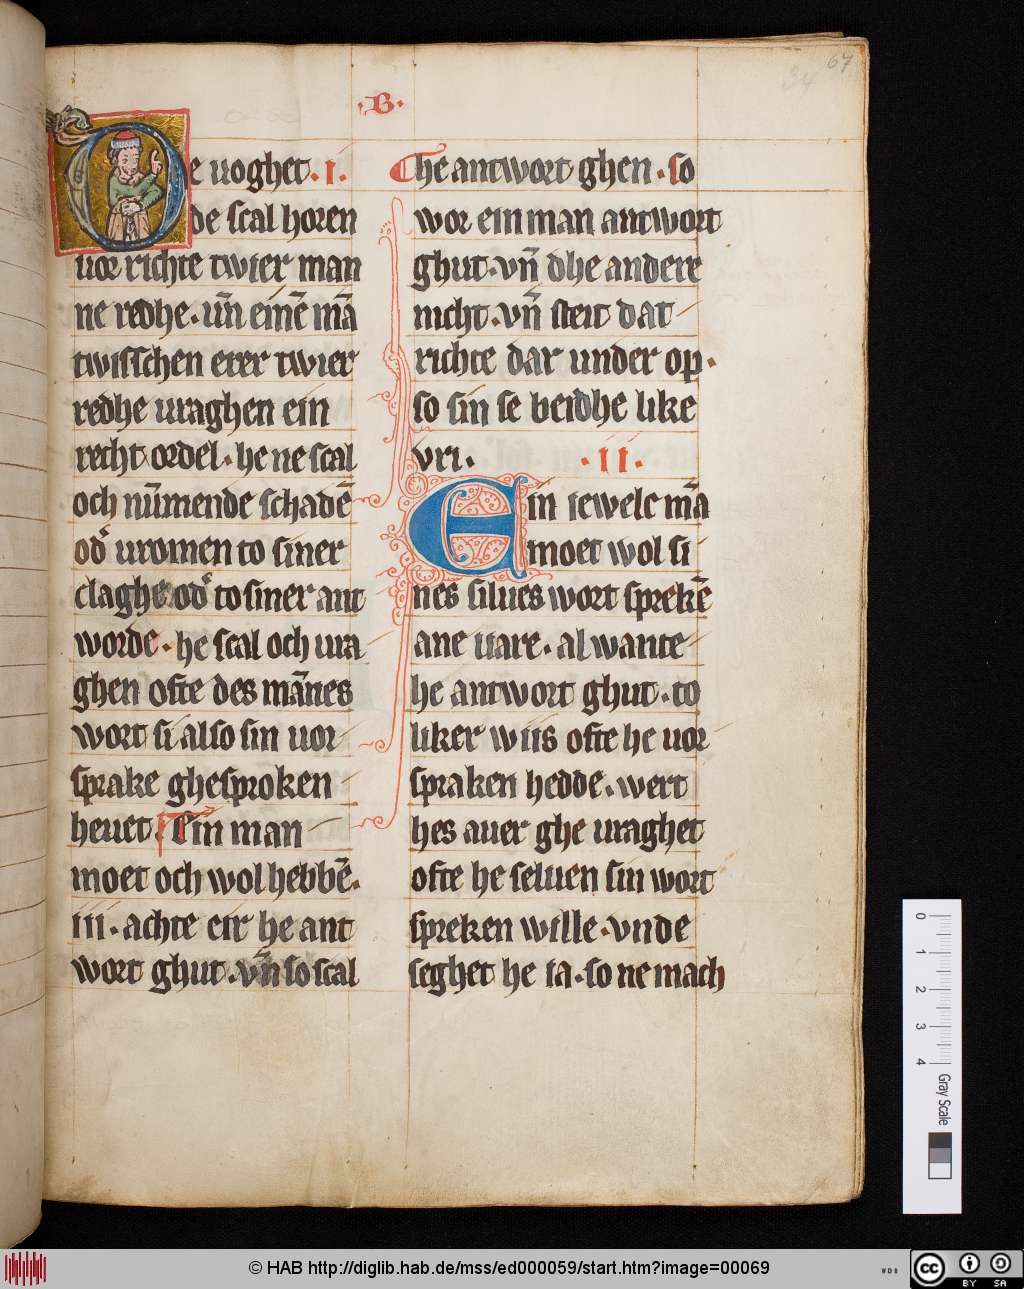 67
34
·B·
De uoghet·i·
de scal horen
uor richte twier man
ne redhe·un̄ einē mā
twisschen erer twier
redhe uraghen ein
recht ordel·he ne scal
och nūmende schadē
od̓ uromen to siner
claghe od̓ to siner ant
worde·he scal och ura
ghen ofte des mānes
wort si also sin uor
sprake ghesproken
heuet. Ein man
moet och wol hebbē·
iii·achte eir he ant
wort ghut·vn̄ so scal
he antwort ghen·so
wor ein man antwort
ghut·vn̄ dhe andere
nicht·vn̄ steit dat
richte dar under op·
so sin se beidhe like
vri· ·ii·
Ein iewelc mā
moet wol si
nes silues wort sprekē
ane uare·al wante
he antwort ghut·to
liker wiis ofte he uor
spraken hedde·wert
hes auer ghe uraghet
ofte he seluen sin wort
spreken wille·vnde
seghet he ia·so ne mach
0 1 2 3 4 Gray Scale
© HAB http://diglib.hab.de/mss/ed000059/start.htm?image=00069
WDB
cc BY SA